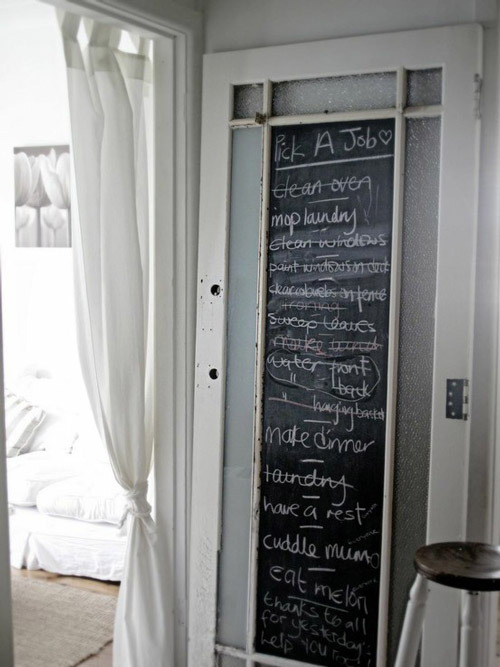 Pick A Job♡
clean oven
mop laundry
clean windows
paint windows in
clear cobwebs on fence
ironing
sweep leaves
make
water front
" back
" hanging baskets
make dinner
laundry
have a rest
cuddle mum
eat
thanks to all
for yesterday
help you